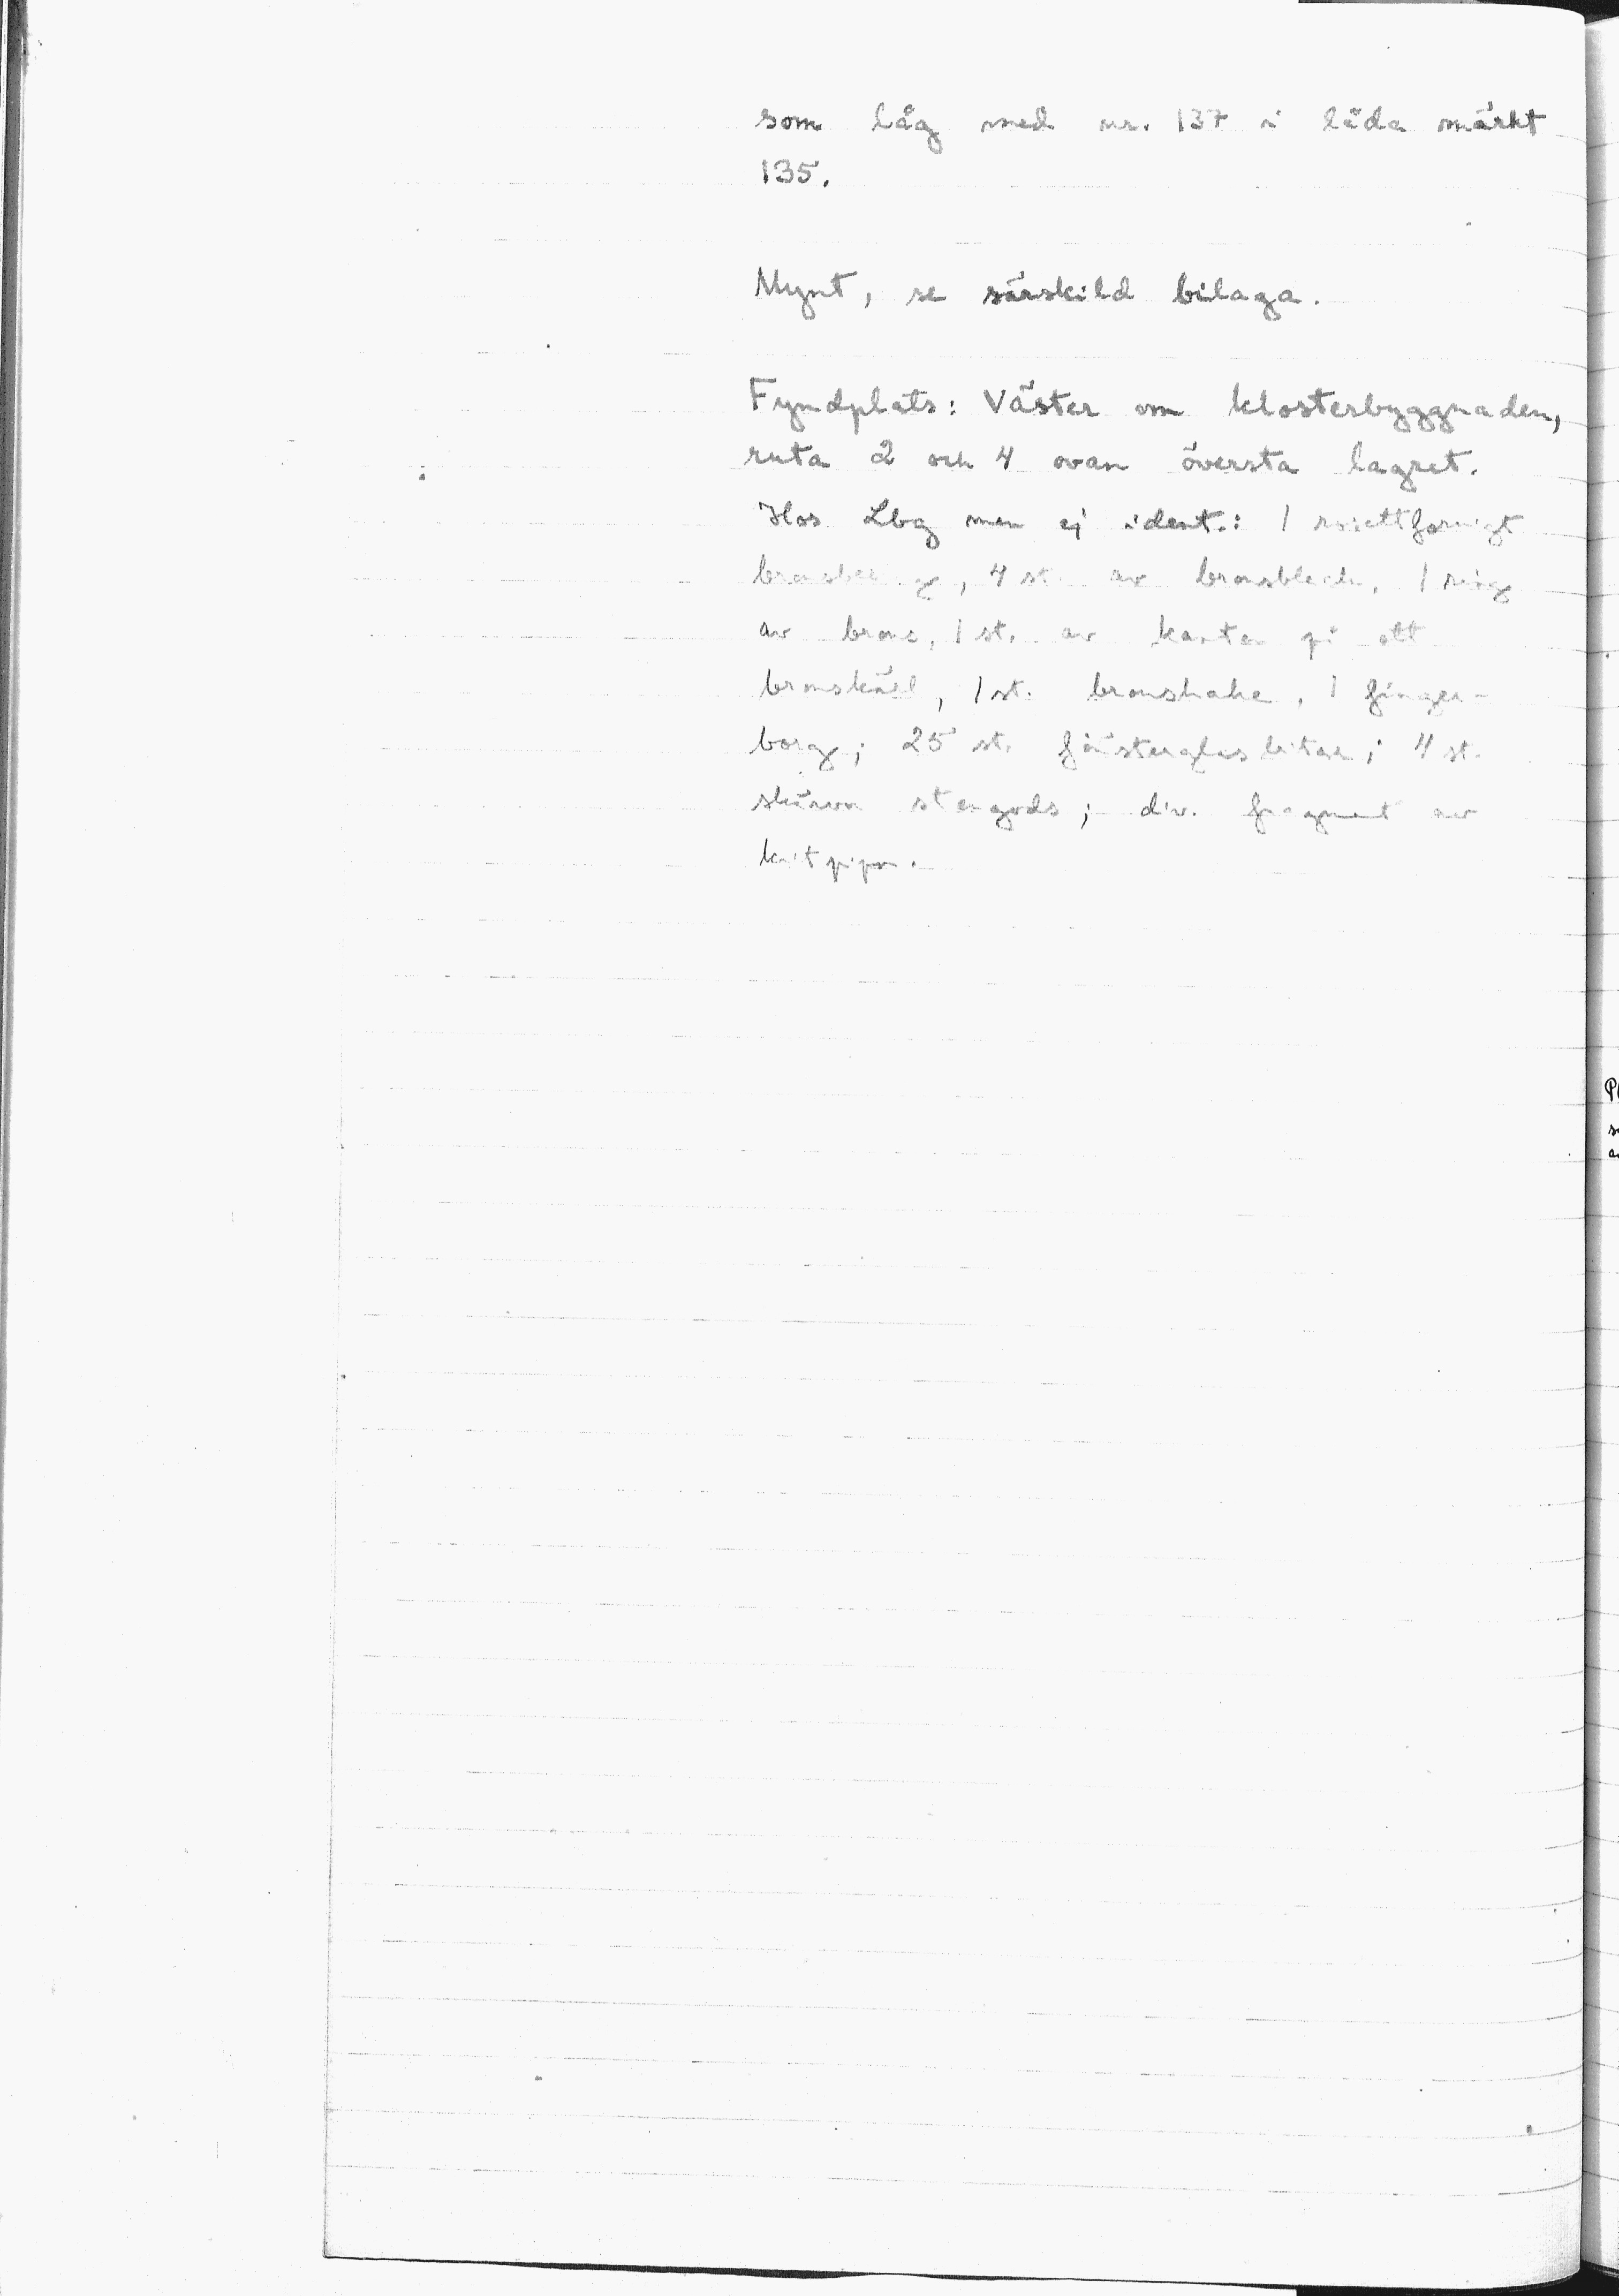 som låg med nr. 137 i låda märkt
135.
Mynt, se särskild bilaga.
Fyndplats: Väster om klosterbyggnaden,
ruta 2 och 4 ovan översta lagret.
Hos Lbg men ej ident.: 1 rosettformigt
4 st. av bronsbleck, 1 ring
av brons, 1 st. av kanten på ett
bronskärl, 1 st. bronshake, 1 finger-
borg; 25 st. fönsterglasbitar; 4 st.
skärvor stengods; div. fragment av
kritpipor.